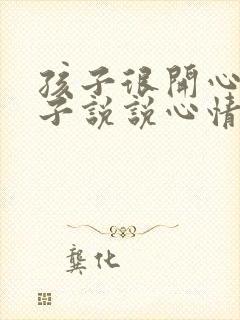 孩子很開心
子說說心情
龔化